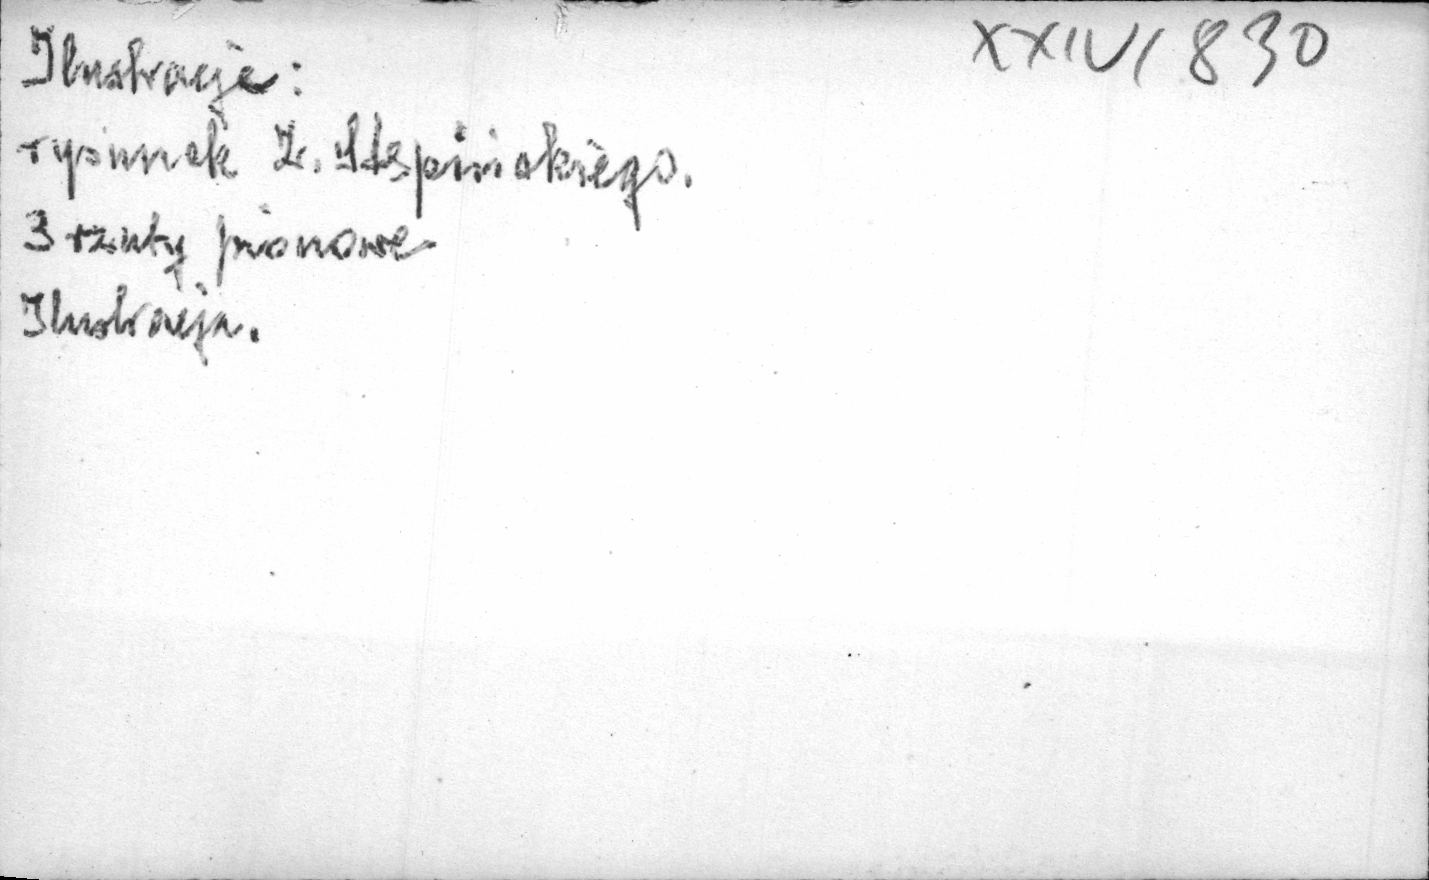 XXIV/830
Ilustracje:
rysunek Z. Stępińskiego.
3 rzuty pionowe
Ilustracja.